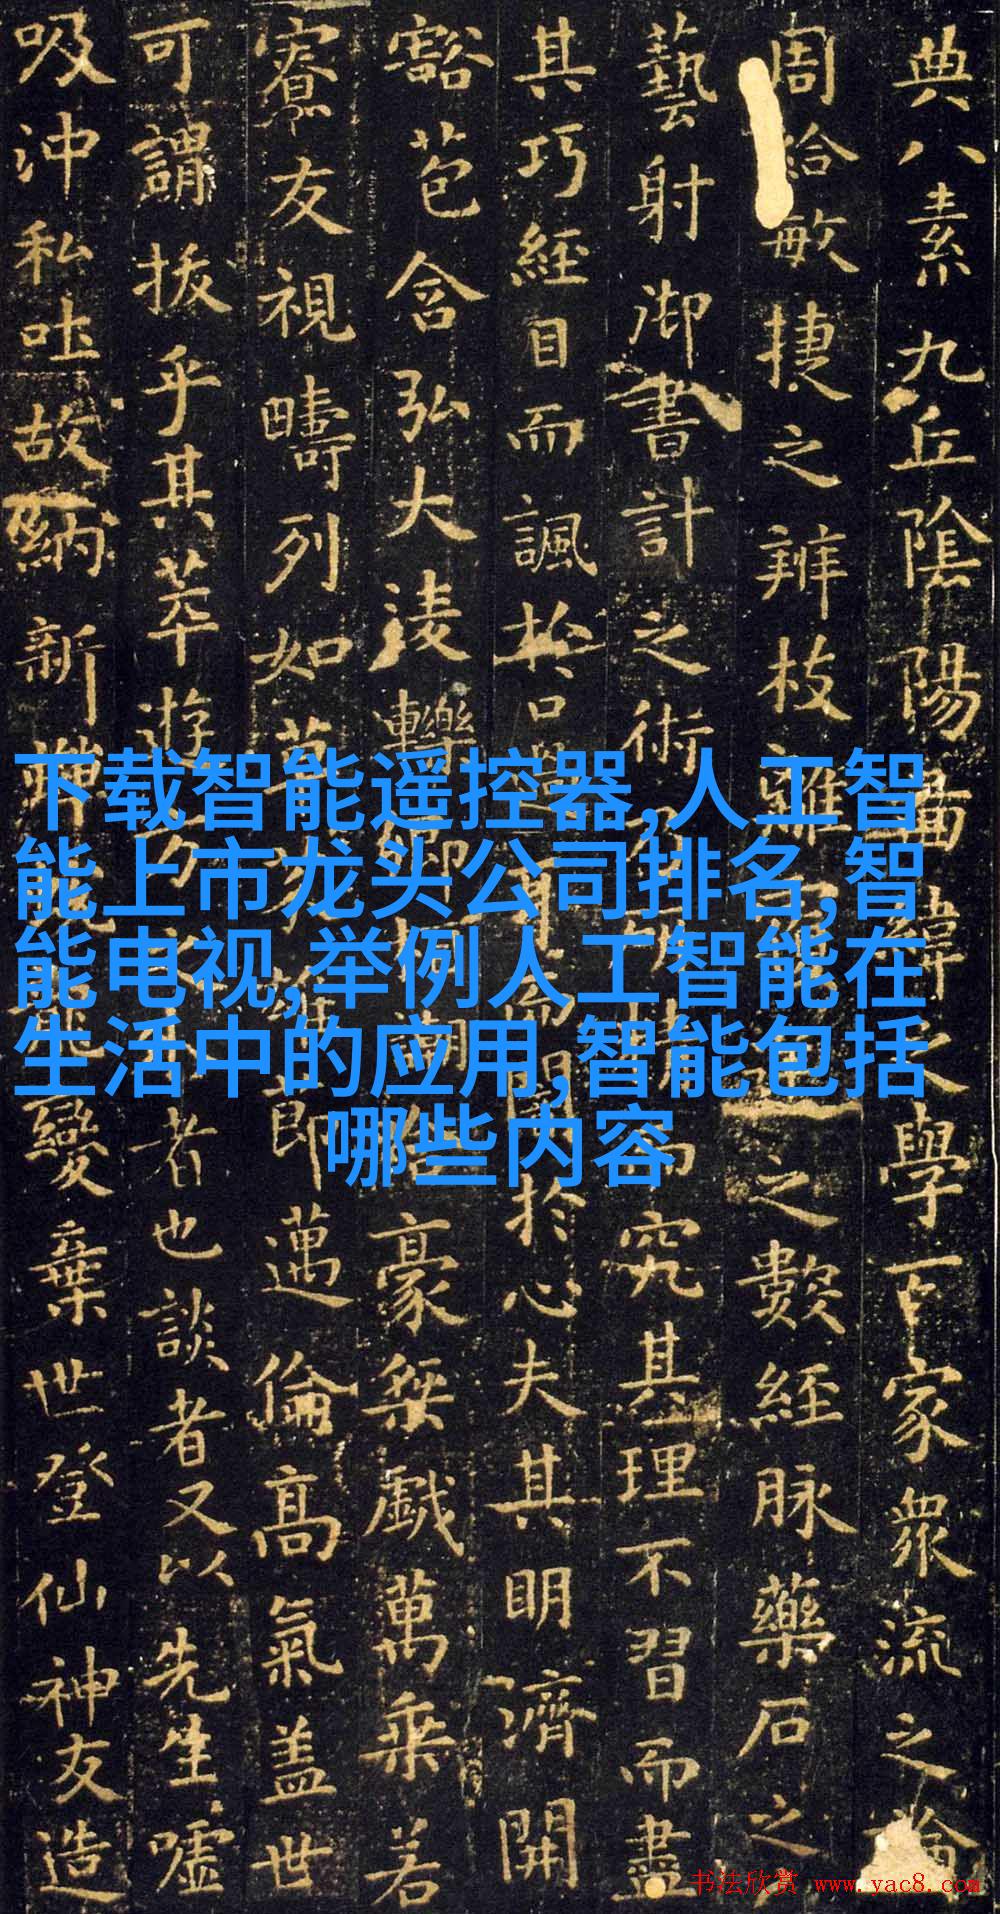 典八素九丘陰陽緯之學百家眾流之論
周給敏捷之辨枝離之數經脉藥石之
藝射御書計之術究其理不習而盡
其巧經目而諷於口闇於心夫其明濟開
豁苞含弘大淩轢豪桀戲萬乘若
寮友視疇列如節邁倫高氣盖世
可謂拔乎其萃遊方者也談者又以先生噓
吸沖私吐故納新變棄世登仙神友造
下载智能遥控器,人工智
能上市龙头公司排名,智
能电视,举例人工智能在
生活中的应用,智能包括
哪些内容
书法欣赏 www.yac8.com